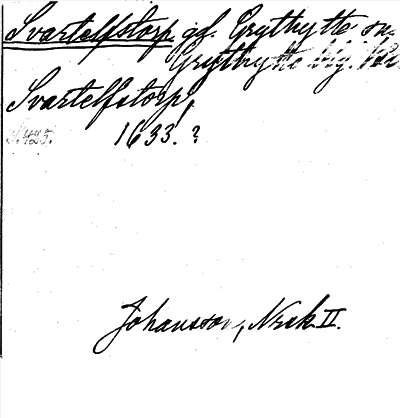 Svartelfstorp gd. Grythytte sn.
Grythytte bg.
Svartelfstorp,
1633.?
Johansson, Nork II.